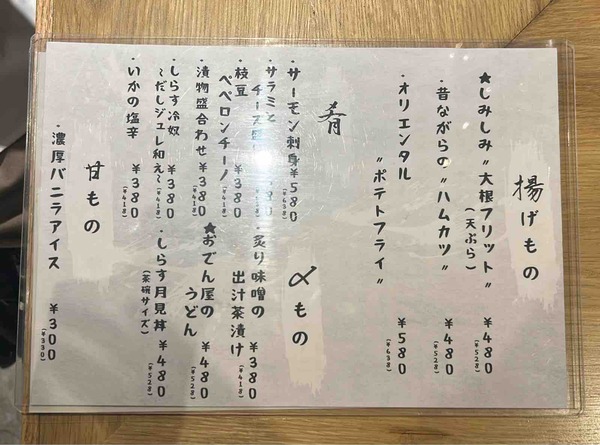 揚げもの
★しみしみ〝大根フリット〟
(天ぷら)
¥480
(¥528)
・昔ながらの〝ハムカツ〟
¥480
(¥528)
・オリエンタル
〝ポテトフライ〟
¥580
(¥638)
肴
・サーモン刺身¥580
(¥638)
・サラミと
チーズ
・枝豆
ペペロンチーノ
¥380
(¥418)
・漬物盛合わせ¥380
(¥418)
・しらす冷奴
〜だしジュレ和え〜
¥380
(¥418)
・いかの塩辛
¥380
(¥418)
〆もの
・炙り味噌の
出汁茶漬け
¥380
(¥418)
★おでん屋の
うどん
¥480
(¥528)
・しらす月見丼
(茶碗サイズ)
¥480
(¥528)
甘もの
・濃厚バニラアイス
¥300
(¥330)